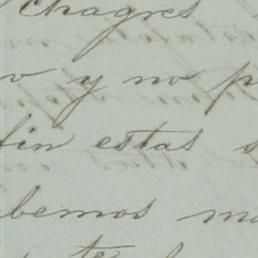 Chagres
y no p
fin estas s
bemos ma